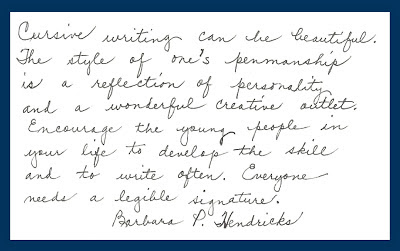 Cursive writing can be beautiful.
The style of one's penmanship
is a reflection of personality
and a wonderful creative outlet.
Encourage the young people in
your life to develop the skill
and to write often. Everyone
needs a legible signature.
Barbara P. Hendricks